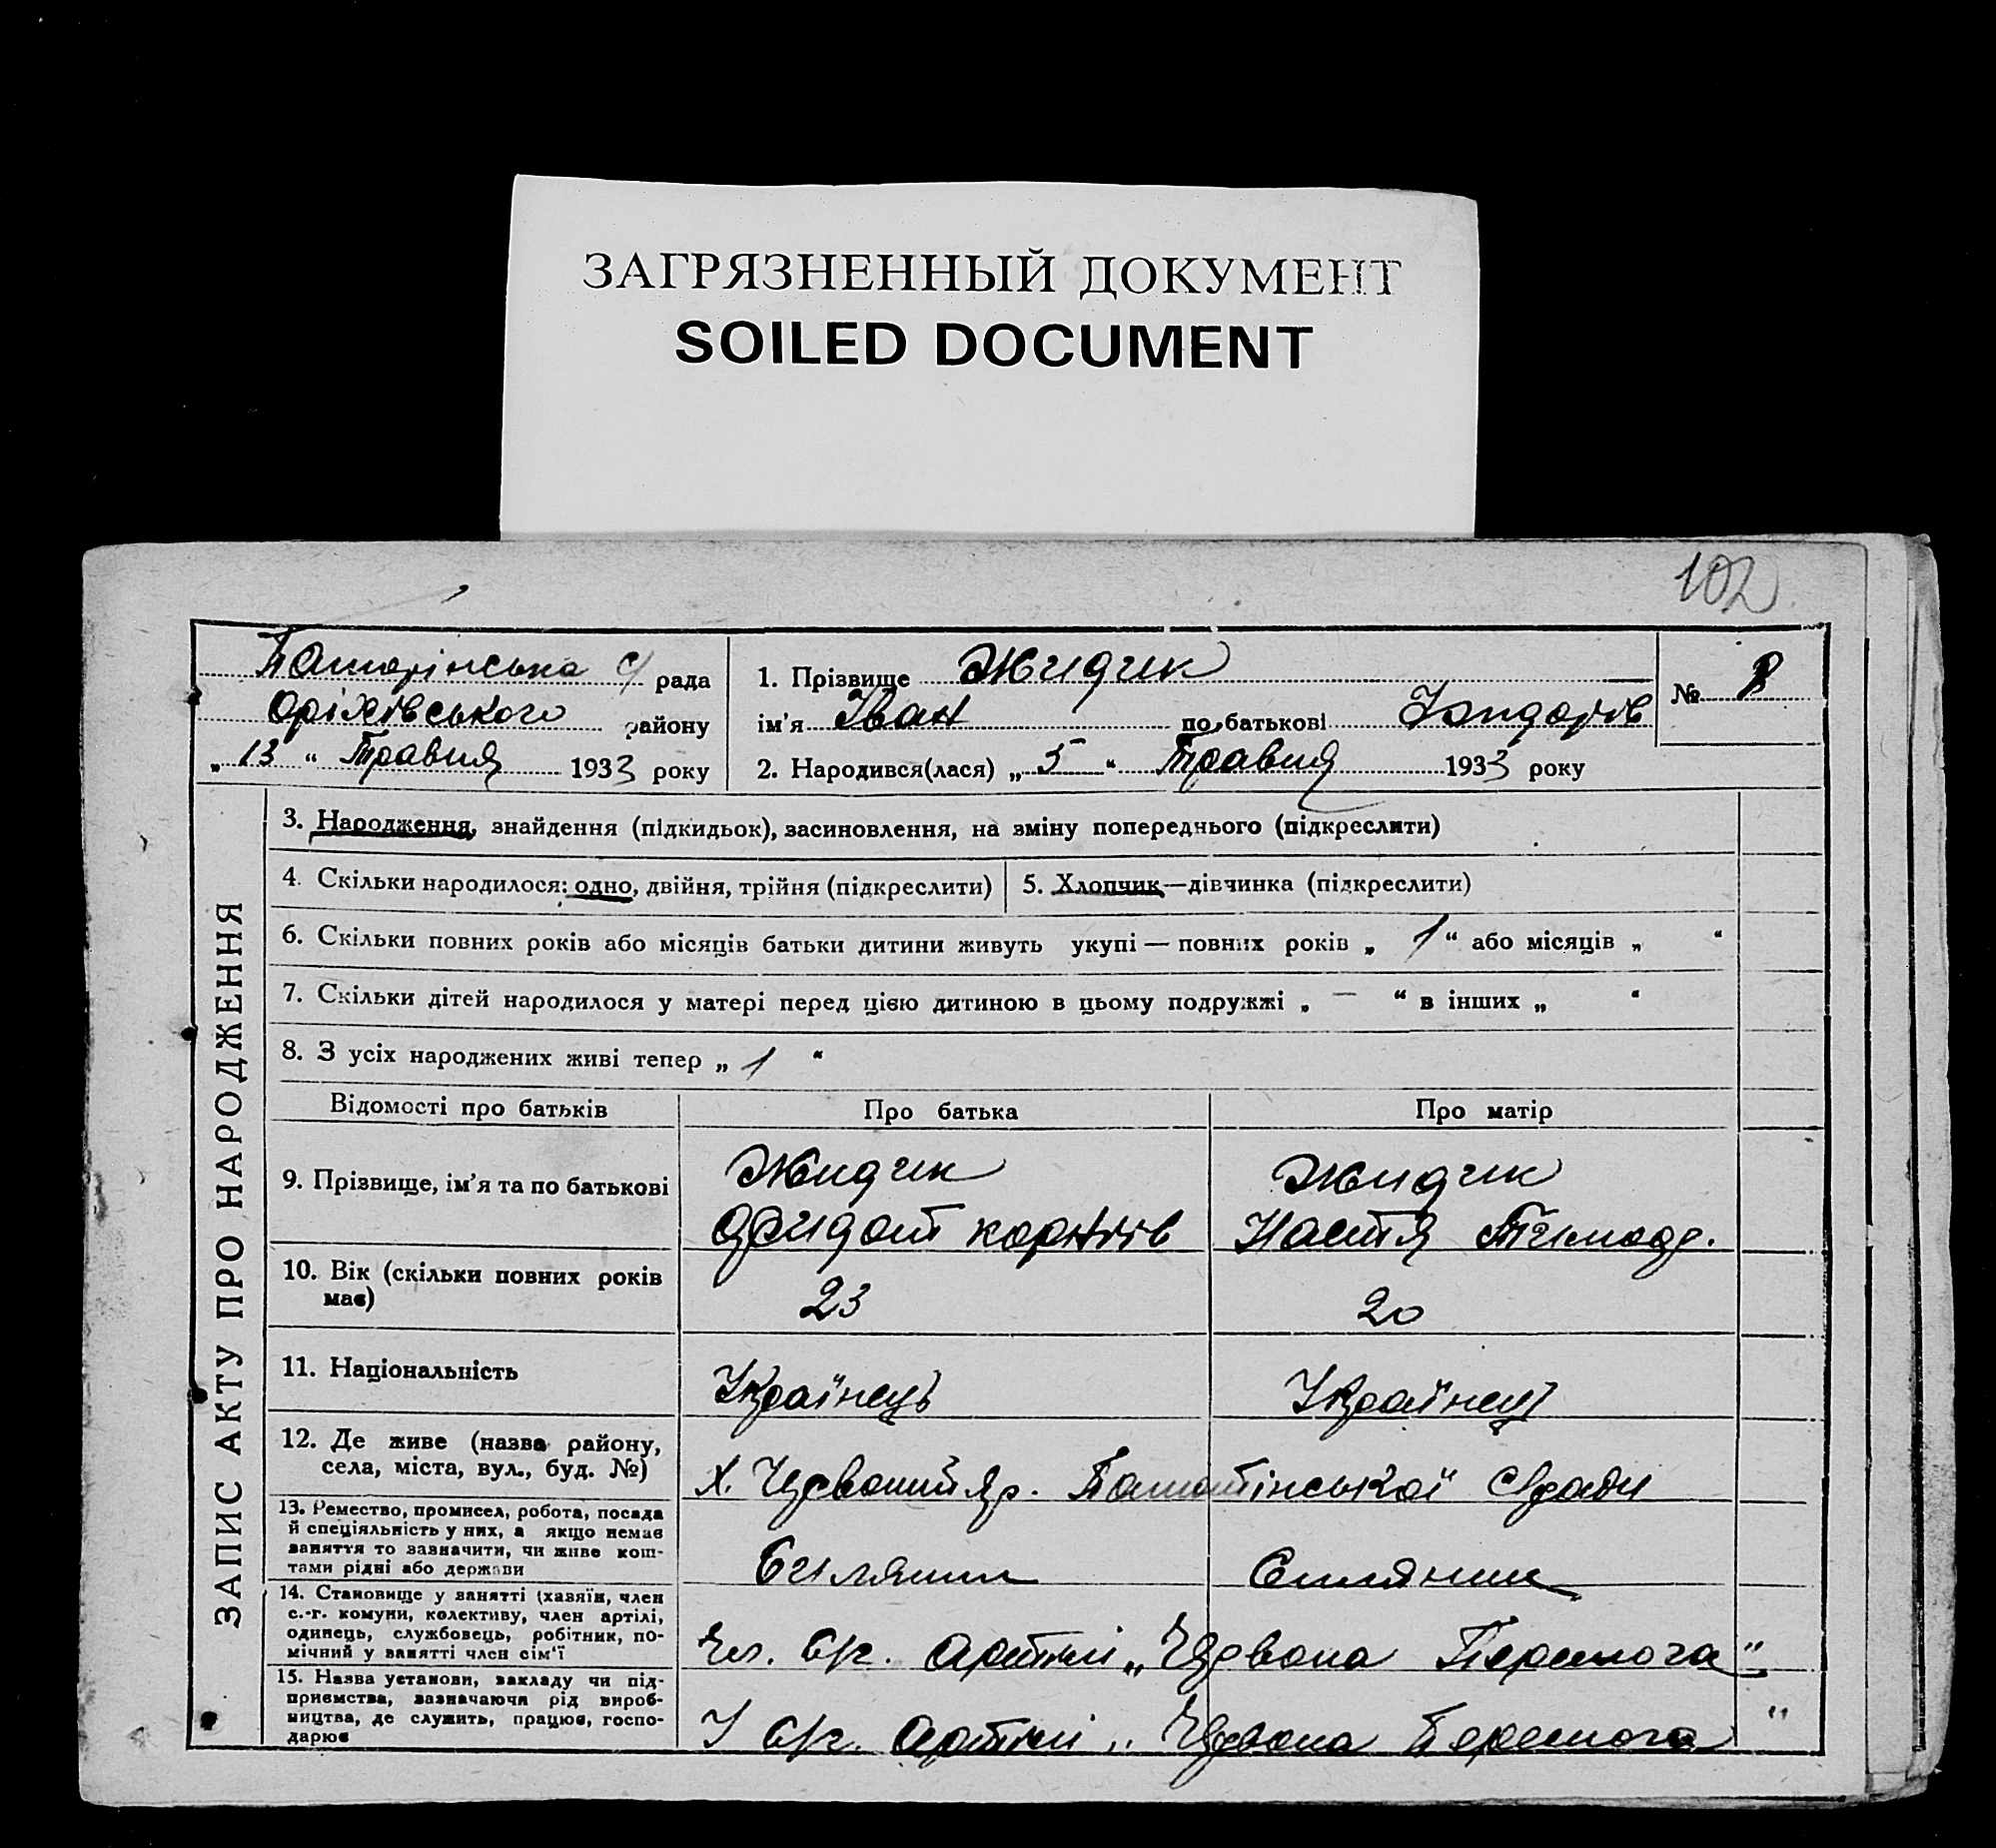 ЗАГРЯЗНЕННЫЙ ДОКУМЕНТ
SOILED DOCUMENT
102
с/ рада
Оріхівського району
„ 13 “ Травня 1933 року
1. Прізвище Жидик
№
ім'я Іван по батькові
2. Народився(лася) „ 5 “ Травня 1933 року
ЗАПИС АКТУ ПРО НАРОДЖЕННЯ
3. Народження, знайдення (підкидьок), засиновлення, на зміну попереднього (підкреслити)
4. Скільки народилося: одно, двійня, трійня (підкреслити)
5. Хлопчик—дівчинка (підкреслити)
6. Скільки повних років або місяців батьки дитини живуть укупі — повних років „ 1 “ або місяців „ “
7. Скільки дітей народилося у матері перед цією дитиною в цьому подружжі „ — “ в інших „ “
8. З усіх народжених живі тепер „ 1 “
Відомості про батьків
Про батька
Про матір
9. Прізвище, ім'я та по батькові
Жидик
Жидик
Настя
10. Вік (скільки повних років
має)
23
20
11. Національність
Українець
Українец
12. Де живе (назва району,
села, міста, вул., буд. №)
х. Червоний Яр.
13. Ремество, промисел, робота, посада
й спеціяльність у них, а якщо немає
заняття то зазначити, чи живе кош-
тами рідні або держави
14. Становище у занятті (хазяїн, член
с.-г. комуни, колективу, член артілі,
одинець, службовець, робітник, по-
мічний у занятті член сім'ї
Чл. с/г. артілі „Червона Перемога“
15. Назва установи, закладу чи під-
приємства, зазначаючи рід вироб-
ництва, де служить, працює, госпо-
дарює
У с/г. артілі „Червона Перемога “